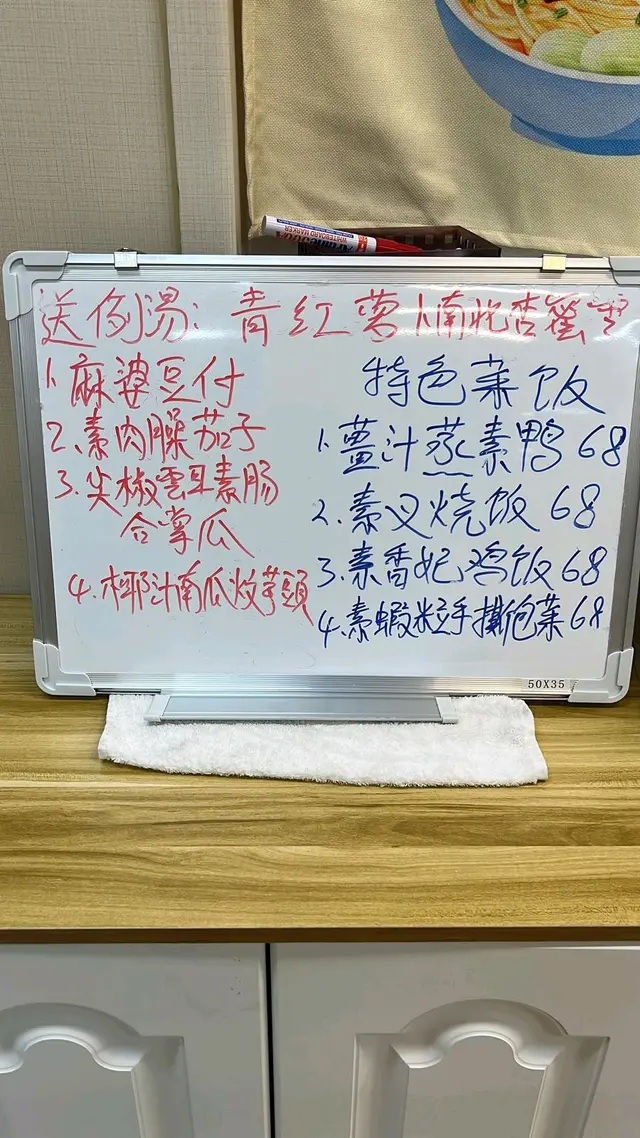 送例湯：青紅萝卜南北杏蜜棗
1.麻婆豆付
2.素肉臊茄子
3.尖椒雲耳素肠
合掌瓜
4.椰汁南瓜炆芋頭
特色菜饭
1.薑汁蒸素鴨 68
2.素叉烧饭 68
3.素香妃鸡饭 68
4.素蝦粒手撕包菜 68
WHITEBOARD MARKER
50X35